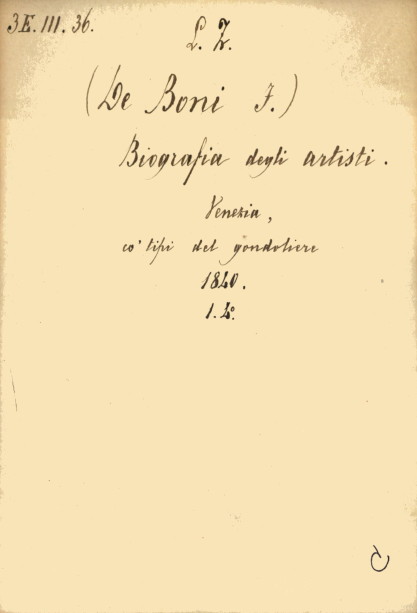 3E. III. 36.
L. Z.
(De Boni F.)
Biografia degli artisti.
Venezia,
co' tipi del gondoliere
1840.
1. 4°.